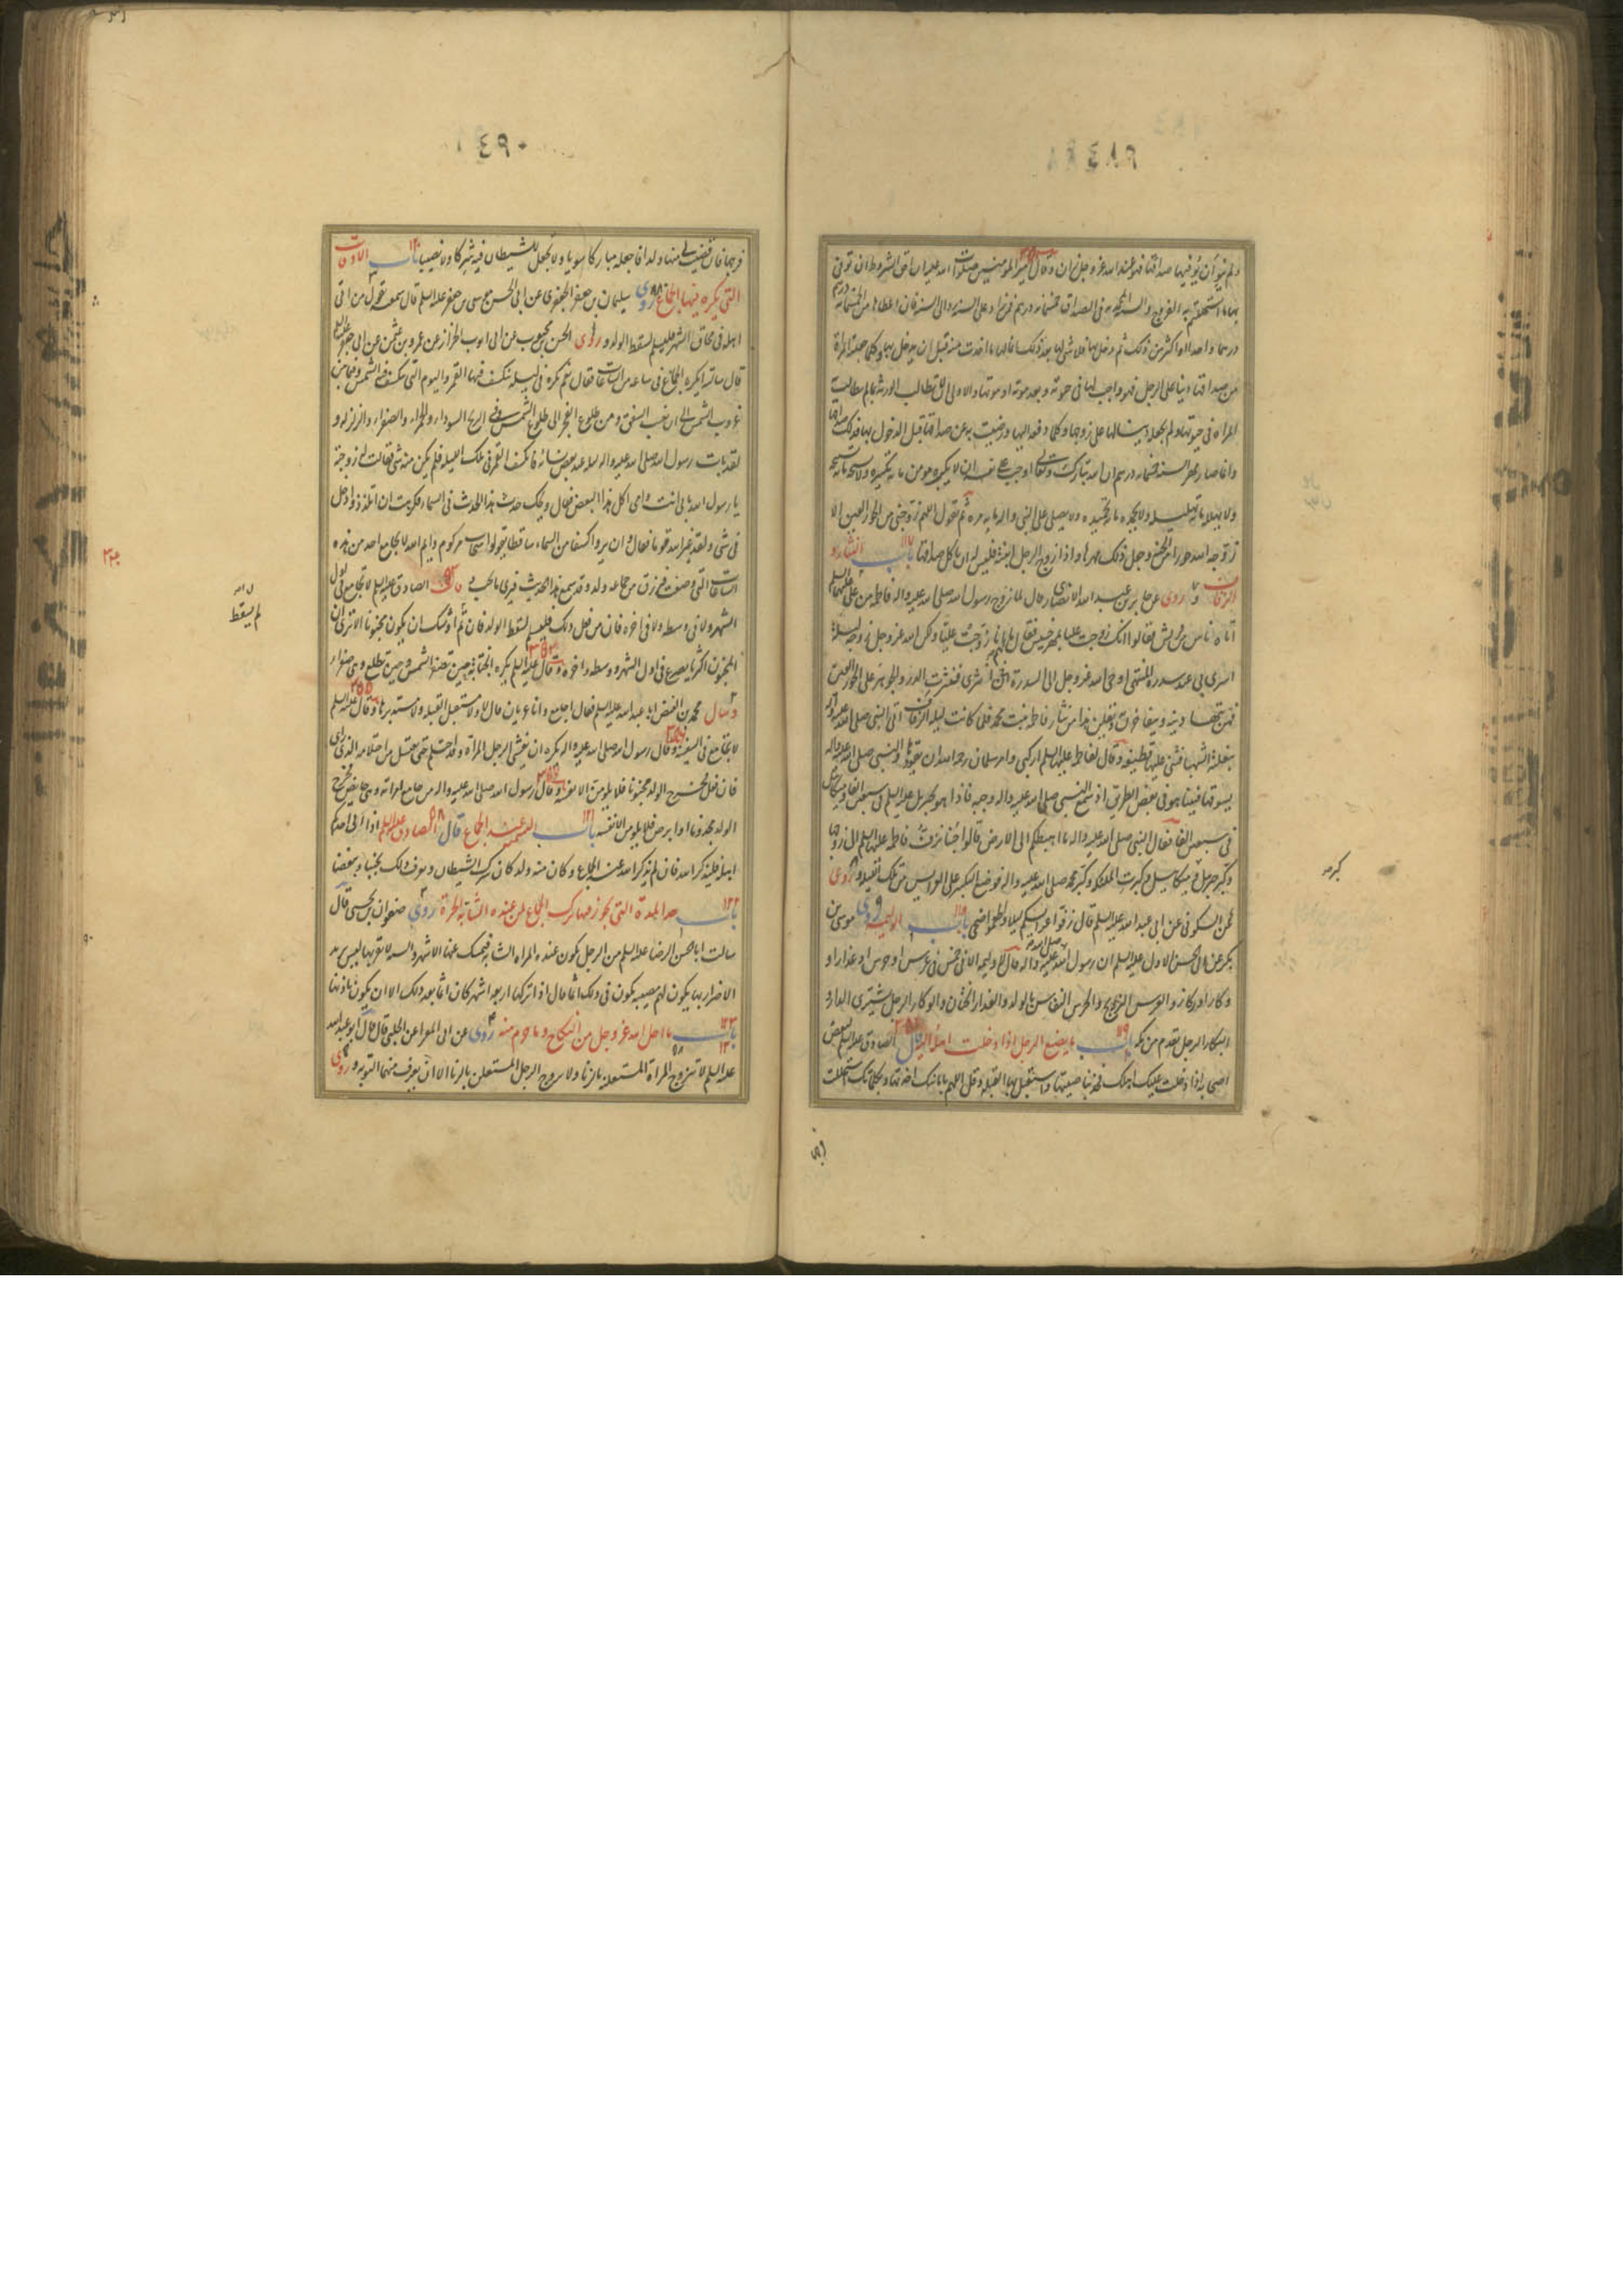 ٤٨٩
ولم ينو أن يوفيها صداقها فهو عند الله عز وجل زان وقال أمير المؤمنين صلوات الله عليه ان احق الشروط ان يوفى
بها ما استحللتم به الفروج والسنة المحمدية في الصداق خمسمائة درهم فمن زاد على السنة رد الى السنة فان اعطاها من الخمسمائة درهم
درهما واحدا او اكثر من ذلك ثم دخل بها فلا شيء لها بعد ذلك انما لها ما اخذت منه قبل ان يدخل بها وكلما جعلته المرأة
من صداقها دينا على الرجل فهو واجب لها في حيوته وبعد موته او موتها والاولى ان لا تطالب الورثة بما لم تطالب به
المراة في حيوتها ولم تجعله دينا لها على زوجها وكلما دفعه اليها ورضيت به عن صداقها قبل الدخول بها فذلك صداقها
وانما صار مهر السنة خمسمائة درهم لان الله تبارك وتعالى اوجب على نفسه ان لا يكبره مؤمن مائة تكبيرة ولا يسبحه مائة تسبيحة
ولا يهلله مائة تهليلة ولا يحمده مائة تحميدة ولا يصلى على النبي واله مائة مرة ثم يقول اللهم زوجني من الحور العين الا
زوجه الله حوراء من الجنة وجعل ذلك مهرها واذا زوج الرجل ابنته فليس له ان ياكل صداقها باب النثار و
الزفاف وروى عن جابر بن عبد الله الانصاري قال لما زوج رسول الله صلى الله عليه واله فاطمة من على عليهما السلم
اتاه ناس من قريش فقالوا انك زوجت عليا بمهر خسيس فقال لهم ما انا زوجت عليا ولكن الله عز وجل زوجه ليلة
اسرى بي عند سدرة المنتهى اوحى الله عز وجل الى السدرة ان انثرى فنثرت الدر والجوهر على الحور العين
فهن يتهادينه ويتفاخرن به ويقلن هذا من نثار فاطمة بنت محمد فلما كانت ليلة الزفاف اتى النبي صلى الله عليه واله
ببغلته الشهباء وثنى عليها قطيفة وقال لفاطمة عليها السلم اركبى وامر سلمان رحمه الله ان يقودها والنبي صلى الله عليه واله
يسوقها فبينا هو في بعض الطريق اذ سمع النبي صلى الله عليه واله وجبة فاذا هو بجبرئيل عليه السلم في سبعين الفا وميكائيل
في سبعين الفا فقال النبي صلى الله عليه واله ما اهبطكم الى الارض قالوا جئنا نزف فاطمة عليها السلم الى زوجها
وكبر جبرئيل وكبر ميكائيل وكبرت الملئكة وكبر محمد صلى الله عليه واله فوضع التكبير على العرايس من تلك الليلة وروى
عن السكوني عن ابي عبد الله عليه السلم قال زفوا عرايسكم ليلا واطعموا ضحى باب الوليمة روى موسى بن
بكر عن ابي الحسن الاول عليه السلم ان رسول الله صلى الله عليه واله قال لا وليمة الا في خمس في عرس او خرس او عذار او
وكار او ركاز والعرس التزويج والخرس النفاس بالولد والعذار الختان والوكار الرجل يشترى الدار و
الركاز الرجل يقدم من مكة باب ما يصنع الرجل اذا دخلت اهله اليه قال الصادق عليه السلم لبعض
اصحابه اذا دخلت عليك اهلك فخذ بناصيتها واستقبل بها القبلة وقل اللهم بامانتك اخذتها وبكلماتك استحللت
٤٩٠
فرجها فان قضيت لى منها ولدا فاجعله مباركا سويا ولا تجعل للشيطان فيه شركا ولا نصيبا باب الاوقات
التي يكره فيها الجماع روى سليمان بن جعفر الجعفري عن ابي الحسن موسى بن جعفر عليه السلم قال سمعته يقول من اتى
اهله في محاق الشهر فليسلم لسقط الولد وروى الحسن بن محبوب عن ابي ايوب الخزاز عن عمرو بن عثمن عن ابي جعفر عليه السلم
قال سالته ايكره الجماع في ساعة من الساعات فقال نعم يكره في ليلة ينكسف فيها القمر واليوم الذي تنكسف فيه الشمس وفيما بين
غروب الشمس الى ان يغيب الشفق ومن طلوع الفجر الى طلوع الشمس وفي الريح السوداء والحمراء والصفراء والزلزلة و
لقد بات رسول الله صلى الله عليه واله ليلة عند بعض نسائه فانكسف القمر في تلك الليلة فلم يكن منه شيء فقالت له زوجته
يا رسول الله بابي انت وامي اكل هذا البغض فقال ويحك حدث هذا الحادث في السماء فكرهت ان اتلذذ وادخل
في شيء ولقد عير الله قوما فقال وان يروا كسفا من السماء ساقطا يقولوا سحاب مركوم وايم الله لا يجامع احد من هذه
الساعات التي وصفت فيرزق من جماعه ولدا وقد سمع بهذا الحديث فيرى ما يحب وقال الصادق عليه السلم لا تجامع في اول
الشهر ولا في وسطه ولا في اخره فان من فعل ذلك فليسلم لسقط الولد فان تم اوشك ان يكون مجنونا الا ترى ان
المجنون اكثر ما يصرع في اول الشهر ووسطه واخره وقال عليه السلم يكره الجنابة حين تصفر الشمس وحين تطلع وهي صفراء
وسال محمد بن الفيض ابا عبد الله عليه السلم فقال اجامع وانا عريان قال لا ولا مستقبل القبلة ولا مستدبرها وقال عليه السلم
لا تجامع في السفينة وقال رسول الله صلى الله عليه واله يكره ان يغشى الرجل المراة وقد احتلم حتى يغتسل من احتلامه الذي راى
فان فعل فخرج الولد مجنونا فلا يلومن الا نفسه وقال رسول الله صلى الله عليه واله من جامع امراته وهي حايض فخرج
الولد مجذوما او ابرص فلا يلومن الا نفسه باب التسمية عند الجماع قال الصادق عليه السلم اذا اتى احدكم
اهله فليذكر الله فان لم يذكر الله عند الجماع وكان منه ولد كان شرك الشيطان ويعرف ذلك بحبنا وبغضنا
باب حد المدة التي يجوز فيها ترك الجماع لمن عنده الشابة الحرة روى صفوان بن يحيى قال
سالت ابا الحسن الرضا عليه السلم عن الرجل يكون عنده المراة الشابة فيمسك عنها الاشهر والسنة لا يقربها ليس يريد
الاضرار بها يكون لهم مصيبة يكون في ذلك اثما قال اذا تركها اربعة اشهر كان اثما بعد ذلك الا ان يكون باذنها
باب ما احل الله عز وجل من النكاح وما حرم منه روى عن ابي المعزا عن الحلبي قال قال ابو عبد الله
عليه السلم لا تتزوج المراة المستعلنة بالزنا ولا يزوج الرجل المستعلن بالزنا الا ان يعرف منهما التوبة وروى
لم يسقط